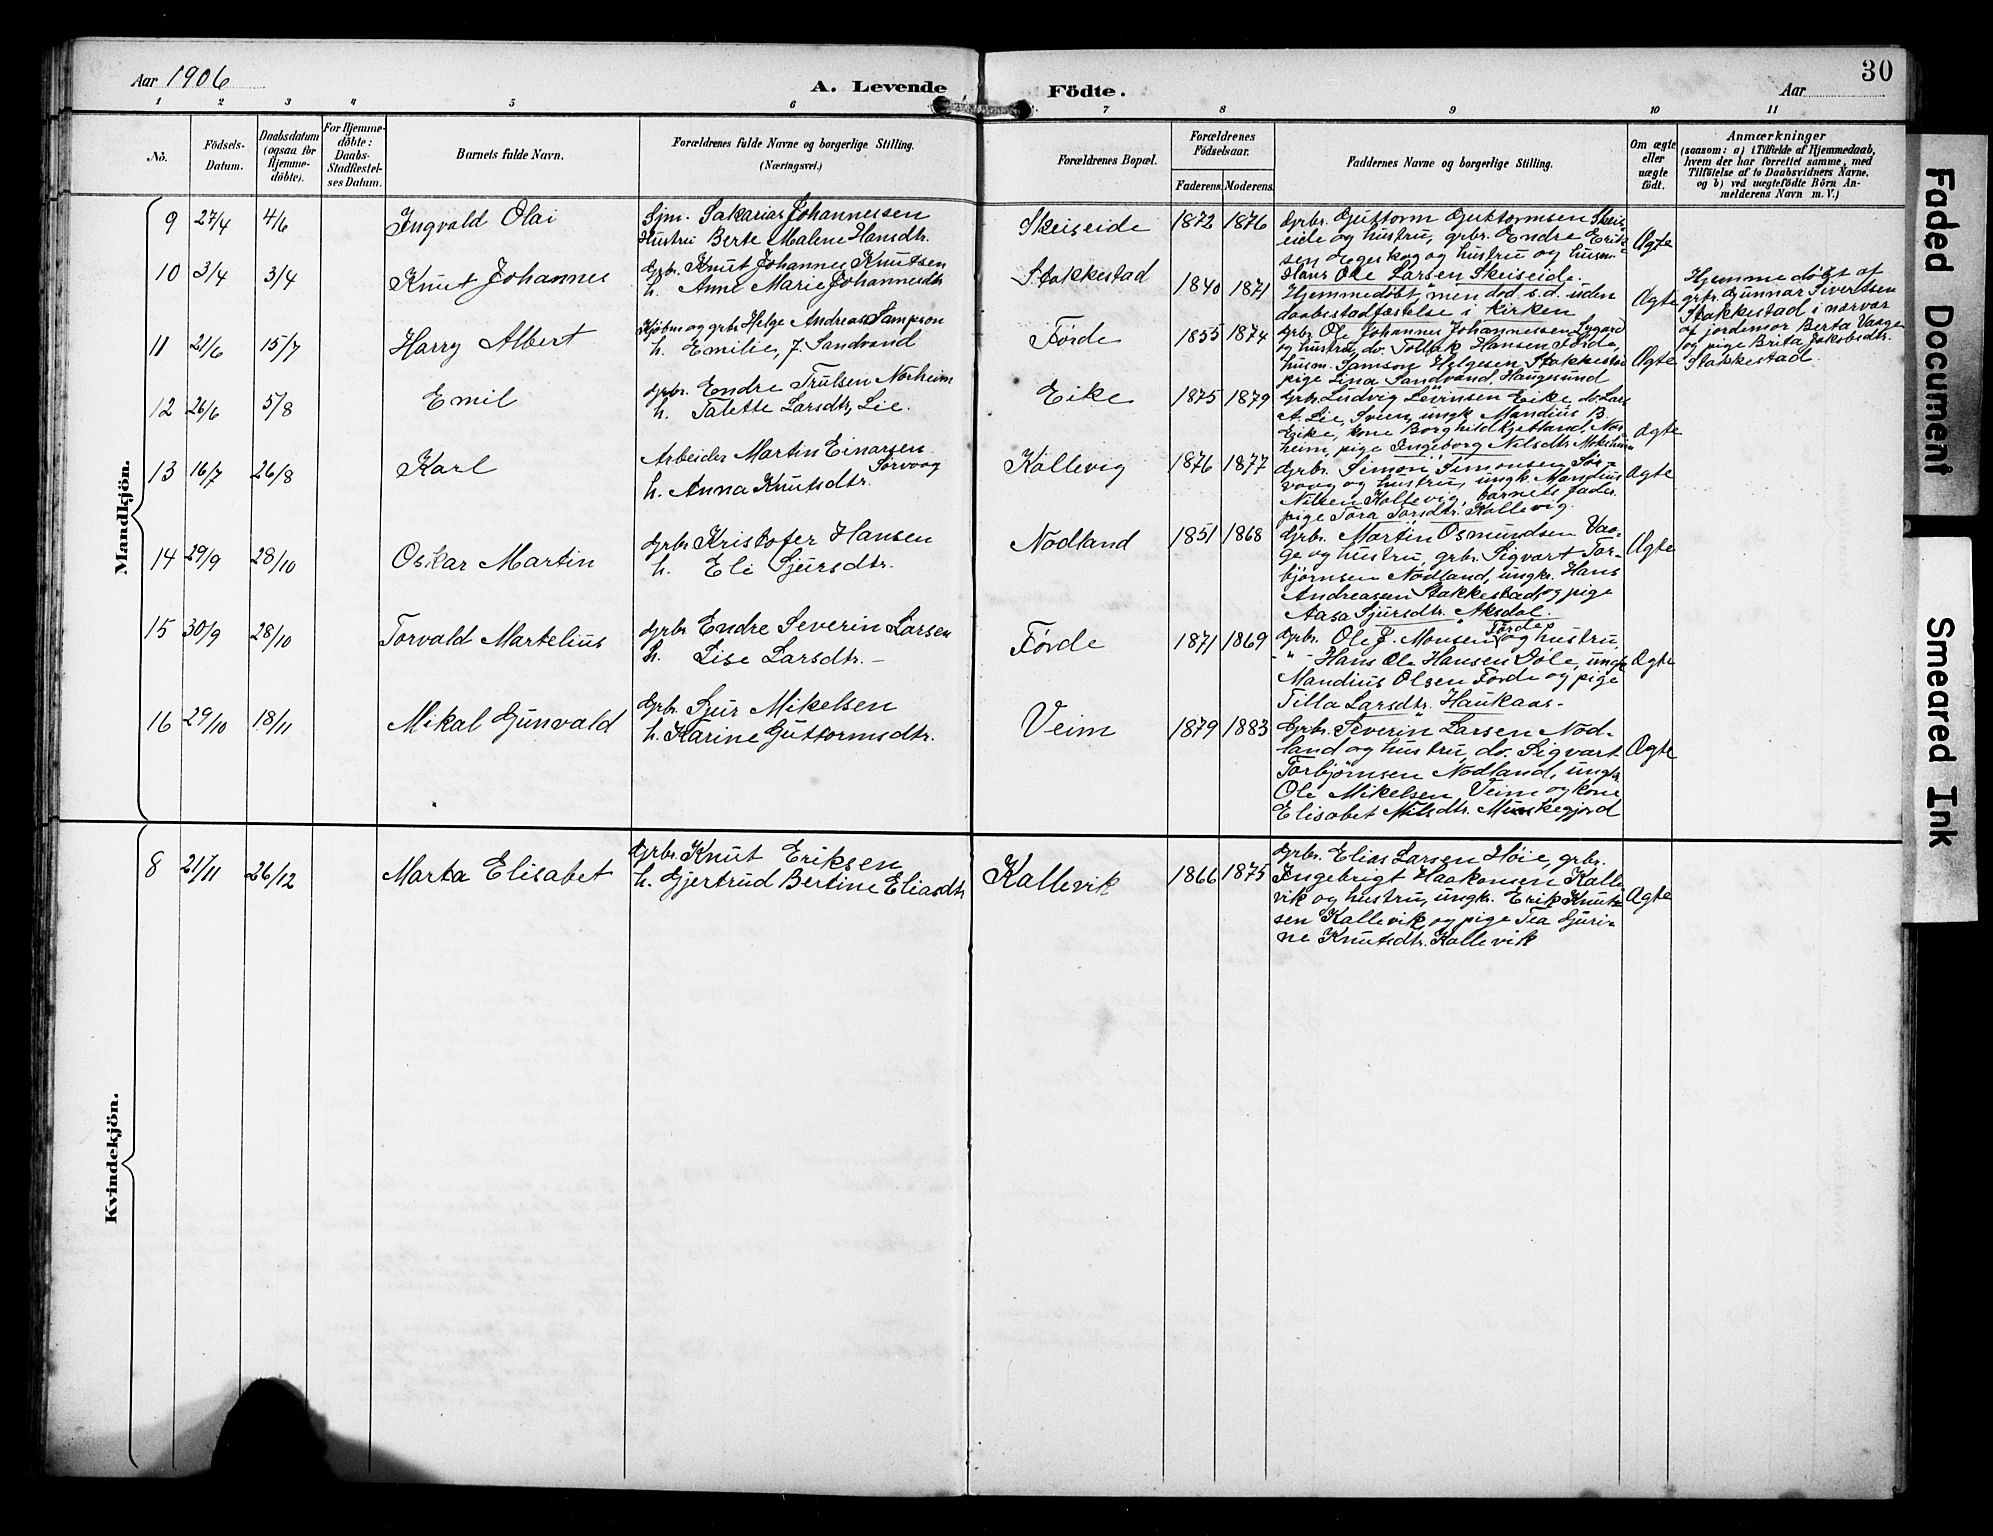 Aar 1906
A. Levende Födte.
Aar
30
1 2 3 4 5 6 7 8 9 10 11
No.
Födsels-Datum.
Daabsdatum (ogsaa for Hjemme-döbte).
For Hjemme-döbte: Daabs-Stadfæstel-ses Datum.
Barnets fulde Navn.
Forældrenes fulde Navne og borgerlige Stilling. (Næringsvei.)
Forældrenes Bopæl.
Forældrenes Födselsaar.
Faderens. Moderens.
Faddernes Navne og borgerlige Stilling.
Om ægte eller uægte födt.
Anmærkninger
(saasom: a) i Tilfælde af Hjemmedaab,
hvem der har forrettet samme, med
Tilföielse af to Daabsvidners Navne.
og b) ved uægtefödte Börn An-
melderens Navn m. V.)
Mandkjön.
9 27/4 4/6 Ingvald Olai
Sjm. Sakarias Johannessen
Hustru Berte Malene Hansdtr.
Skeiseide 1872 1876
Grbr. Guttorm Guttormsen Skeis-
eide og hustru, grbr. Endre Erik-
sen Hegerskog og hustru og husm.
Hans Ole Larsen Skeiseide.
Ægte
10 3/4 3/4 Knut Johannes
Grbr. Knut Johannes Knutsen
h. Anne Marie Johannesdtr
Stakkestad 1840 1871
Hjemmedøbt men død s.d. uden
daabsstadfæstelse i kirken
Ægte
Hjemmedøbt af
grbr. Gunnar Sivertsen
Stakkestad i nærvær
af jordemor Berta Vaage
og pige Brita Jakobsdtr.
Stakkestad.
11 21/6 15/7 Harry Albert
Kjøbm og grbr Helge Andreas Sampson
h. Emilie, f. Sandvand
Førde 1855 1874
Grbr. Ole Johannes Johannessen Lygard
og hustru, do. Tollak Hansen Førde,
husm. Samson Helgesen Stakkestad
pige Lina Sandvand, Haugesund
Ægte
12 26/6 5/8 Emil
Grbr. Endre Trulsen Norheim
h. Talette Larsdtr Lie.
Eike 1875 1879
Grbr. Ludvig Levinsen Eike, do. Lars
A. Lie, Sveen, ungk Mandius B.
Eike, kone Borghild Kjetland, Nor-
heim, pige Ingeborg Nilsdtr.
Ægte
13 16/7 26/8 Karl
Arbeider Martin Einarsen
Sørvaag
h. Anna Knutsdtr.
Kallevig 1876 1877
Grbr. Simon Simonsen Sør-
vaag og hustru, ungk Mandius
Nilsen Kallevig, barnets fader.
pige Tora Torsdtr. Kallevig.
Ægte
14 29/9 28/10 Oskar Martin
Grbr Kristofer Hansen
h. Eli Sjursdtr.
Nodland 1851 1868
Grbr. Martin Osmundsen Vaa-
ge og hustru, grbr. Sigvart Tor-
bjørnsen Nodland, ungk. Hans
Andreasen Stakkestad og pige
Aasa Sjursdtr. Aksdal.
Ægte
15 30/9 28/10 Torvald Martelius
Grbr Endre Severin Larsen
h. Lise Larsdtr. -
Førde 1871 1869
Grbr. Ole J. Monsen Førde og hustru,
- " - Hans Ole Hansen Døle, ungk
Mandius Olsen Førde og pige
Tilla Larsdtr. Haukaas-
Ægte
16 29/10 18/11 Mikal Gunvald
Grbr. Sjur Mikelsen
h. Karine Guttormsdtr.
Veim 1879 1883
Grbr. Severin Larsen Nod-
land og hustru, do. Sigvart
Torbjørnsen Nodland, ungk.
Ole Mikelsen Veim og kone
Elisabet Nilsdtr. Munkegjord
Ægte
Kvindekjön.
8 21/11 26/12 Marta Elisabet
Grbr. Knut Eriksen
h. Gjertrud Bertine Eliasdtr
Kallevik 1866 1875
Grbr. Elias Larsen Høie, grbr.
Ingebrigt Haakonsen Kalle-
vik og hustru, ungk. Erik Knut-
sen Kallevik og pige Tea Sjuri-
ne Knutsdtr. Kallevik
Ægte
Faded Document
Smeared Ink